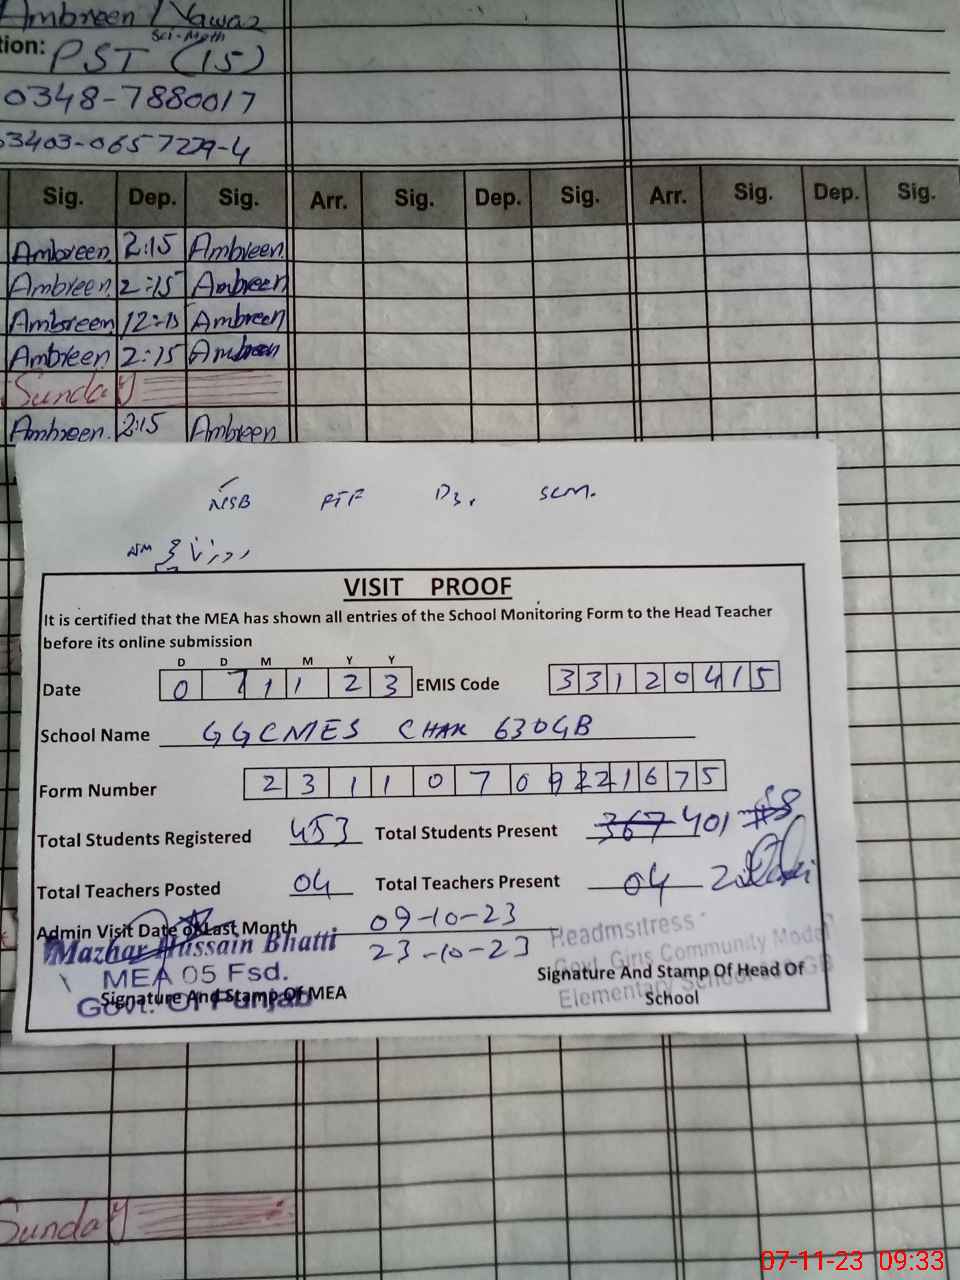 Ambreen Nawaz
Sci-Math
tion: PST (15)
0348-7880017
03403-0657229-4
Sig. Dep. Sig. Arr. Sig. Dep. Sig. Arr. Sig. Dep. Sig.
Ambreen 2:15 Ambreen
Ambreen 2:15 Ambreen
Ambreen 12:15 Ambreen
Ambreen 2:15 Ambreen
Sunday
Ambreen 2:15 Ambreen
NSB PTF SCM.
VISIT PROOF
It is certified that the MEA has shown all entries of the School Monitoring Form to the Head Teacher
before its online submission
D D M M Y Y
Date 0 7 1 1 2 3 EMIS Code 3 3 1 2 0 4 1 5
School Name GGCMES CHAK 630GB
Form Number 2 3 1 1 0 7 0 9 2 2 1 6 7 5
Total Students Registered 453 Total Students Present 367 401
Total Teachers Posted 04 Total Teachers Present 04
Admin Visit Date of Last Month 09-10-23
23-10-23
Mazhar Hussain Bhatti
MEA 05 Fsd.
Govt. Of Punjab
Signature And Stamp Of MEA
Headmsitress
Govt. Girls Community Model
Elementary School 630 GB
Signature And Stamp Of Head Of
School
Sunday
07-11-23 09:33